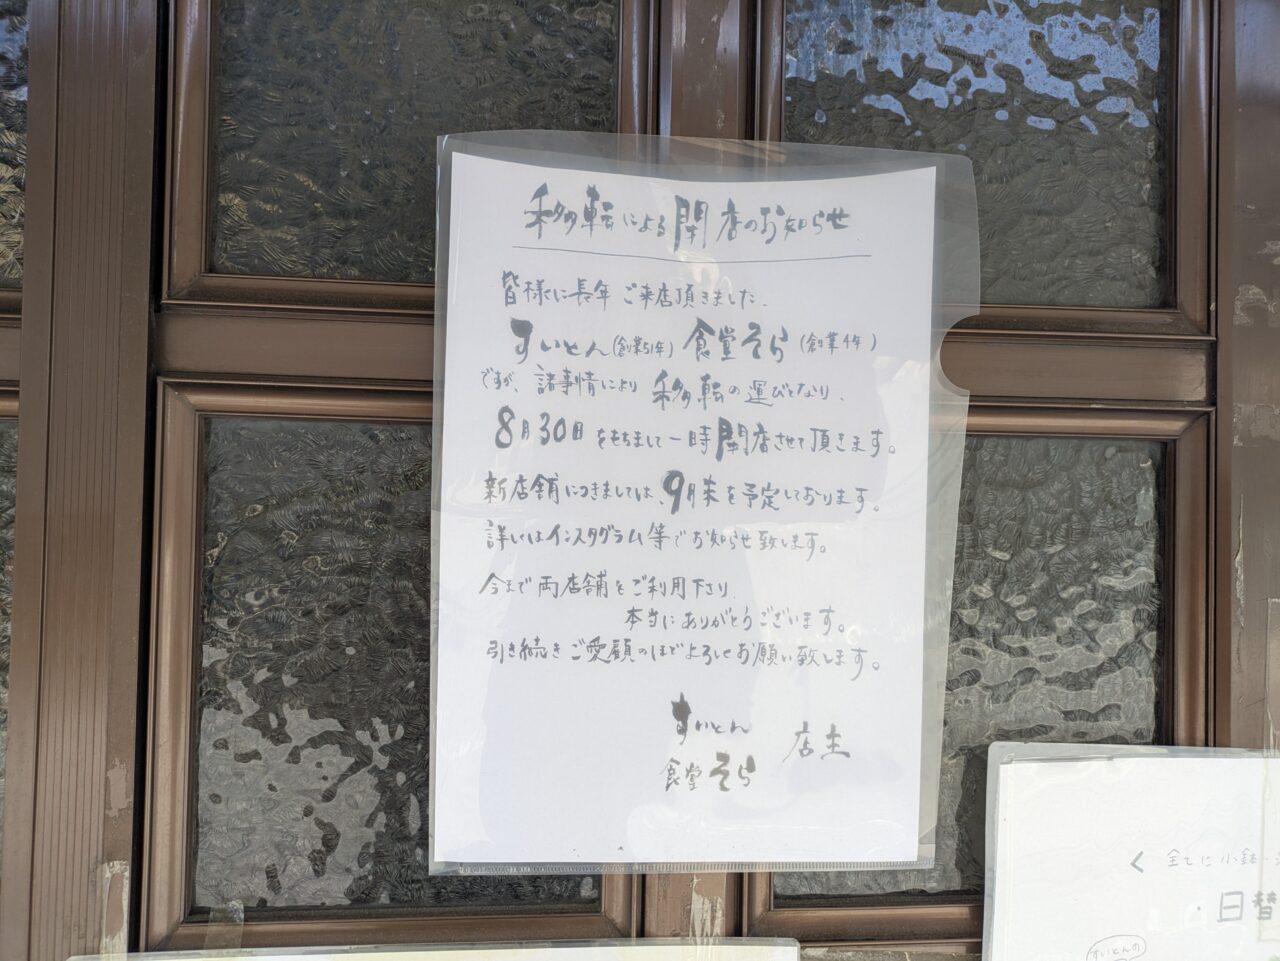 移転による閉店のお知らせ
皆様に長年ご来店頂きました、
すいとん(創業51年) 食堂そら(創業4年)
ですが、諸事情により移転の運びとなり、
8月30日をもちまして一時閉店させて頂きます。
新店舗につきましては、9月末を予定しております。
詳しくはインスタグラム等でお知らせ致します。
今まで両店舗をご利用下さり、
本当にありがとうございます。
引き続きご愛顧のほどよろしくお願い致します。
すいとん
食堂そら
店主
全てに小鉢・
日替
すいとんの